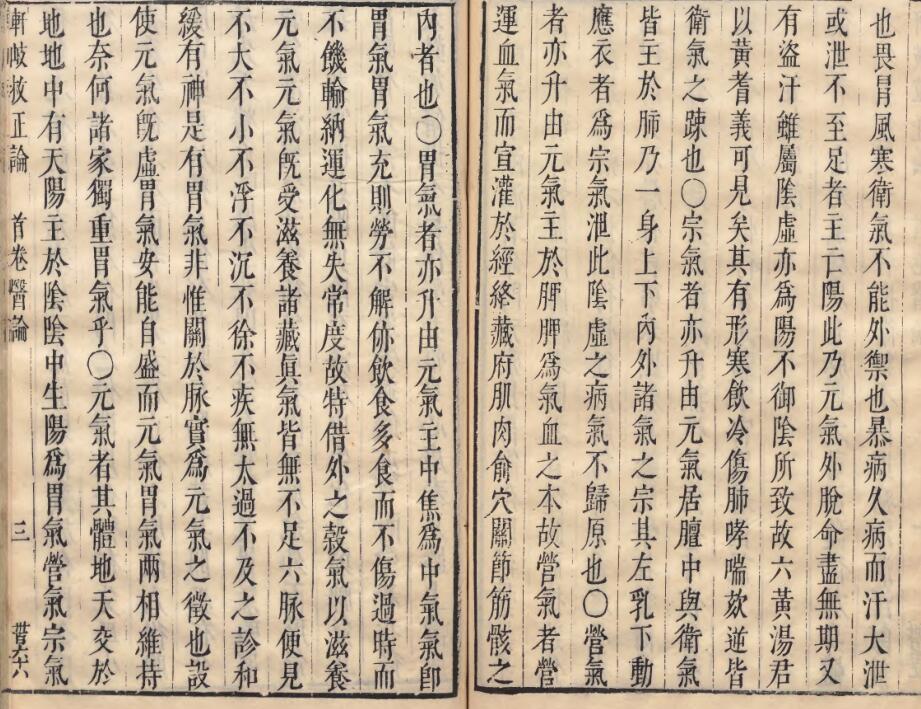 也畏胃風寒衛氣不能外禦也暴病久病而汗大泄
或泄不至足者主亡陽此乃元氣外脫命盡無期又
有盜汗雖屬陰虛亦爲陽不御陰所致故六黃湯君
以黃耆義可見矣其有形寒飲冷傷肺哮喘欬逆皆
衛氣之踈也〇宗氣者亦升由元氣居膻中與衛氣
皆主於肺乃一身上下內外諸氣之宗其左乳下動
應衣者爲宗氣泄此陰虛之病氣不歸原也〇營氣
者亦升由元氣主於脾脾爲氣血之本故營氣者營
運血氣而宣灌於經絡藏府肌肉俞穴關節筋骸之
內者也〇胃氣者亦升由元氣主中焦爲中氣氣卽
胃氣胃氣充則勞不解㑊飲食多食而不傷過時而
不饑輸納運化無失常度故特借外之穀氣以滋養
元氣元氣旣受滋養諸藏眞氣皆無不足六脉便見
不大不小不浮不沉不徐不疾無太過不及之診和
緩有神是有胃氣非惟關於脉實爲元氣之徵也設
使元氣旣虛胃氣安能自盛而元氣胃氣兩相維持
也奈何諸家獨重胃氣乎〇元氣者其體地天交於
地地中有天陽主於陰陰中生陽爲胃氣營氣宗氣
軒岐救正論 首卷醫論 三